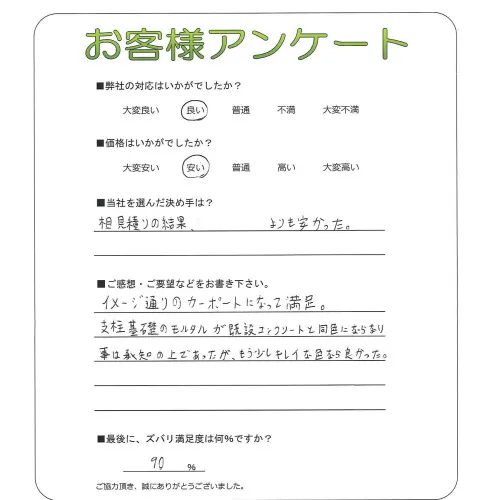 お客様アンケート
■弊社の対応はいかがでしたか？
大変良い 良い 普通 不満 大変不満
■価格はいかがでしたか？
大変安い 安い 普通 高い 大変高い
■当社を選んだ決め手は？
相見積りの結果、 よりも安かった。
■ご感想・ご要望などをお書き下さい。
イメージ通りのカーポートになって満足。
支柱基礎のモルタルが既設コンクリートと同色にならない
事は承知の上であったが、もう少しキレイな色なら良かった。
■最後に、ズバリ満足度は何％ですか？
90 ％
ご協力頂き、誠にありがとうございました。